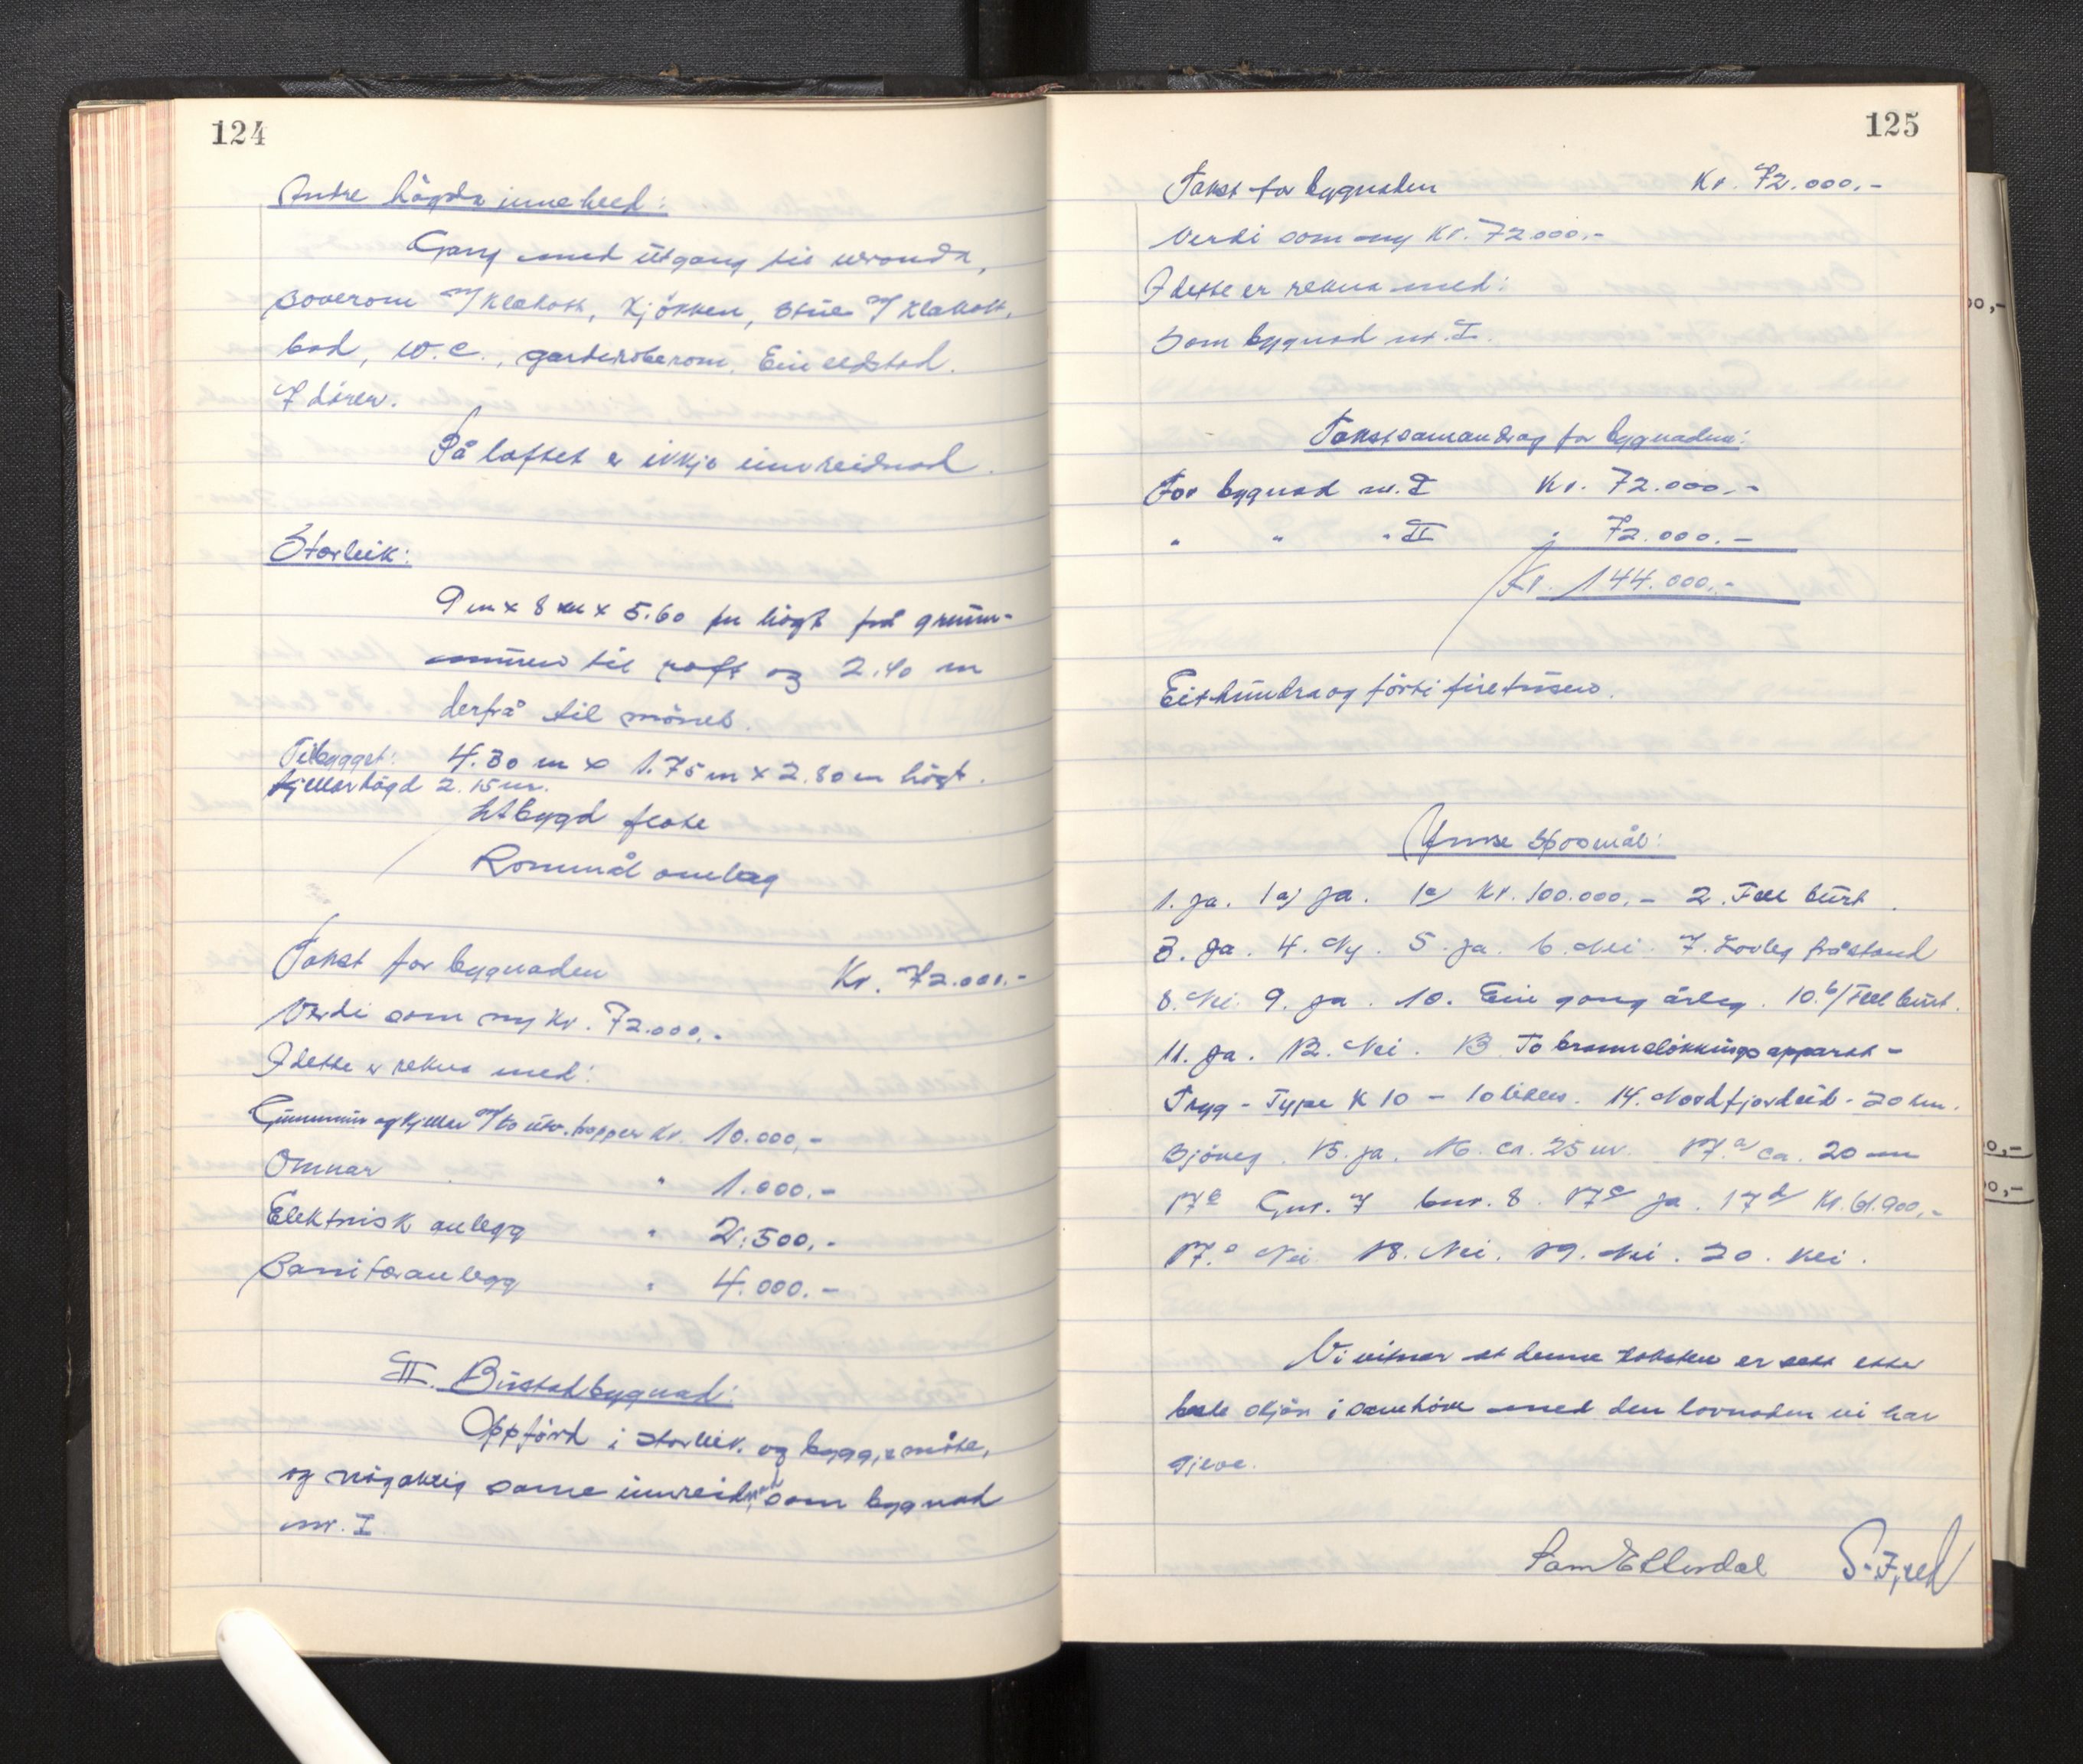 124
Andre högda inneheld:
Gang med ütgang til veranda,
soverom m/ klekott, kjökken, stüe m/ klekott,
bad, W.C., garderoberom. Ein eldstad.
7 dörer.
På loftet er ikkje innreidnad.
Storleik:
9 m x 8 m x 5.60 m högt frå grünn-
müren til raft og 2.40 m
derfrå til mönet.
Tilbygget: 4.30 m x 1.75 m x 2.80 m högt.
Kjellarhögd 2.15 m.
Utbygd flate
Rommål omlag
Takst for bygnaden Kr. 72.000.-
Verdi som ny Kr. 72.000.-
I dette er rekna med:
Grünnmür og kjeller m/ to ütv. trapper Kr. 10.000,-
Omnar " 1.000.-
Elektrisk anlegg " 2.500,-
Sanitæranlegg " 4.000.-
II. Büstadbygnad:
Oppförd i storleik og byggjemåte,
og nögaktig same innreidnad som bygnad
nr. I
125
Takst for bygnaden Kr. 72.000.-
Verdi som ny Kr. 72.000.-
I dette er rekna med:
Som bygnad nr. I.
Takstsamandrag for bygnadene:
For bygnad nr. I Kr. 72.000.-
" " " II " 72.000.-
Kr. 144.000.-
Eithündra og förti fire tüsen.
Ymse spörsmål:
1. Ja. 1a) Ja. 1c) Kr. 100.000.- 2. Fell bürt.
3. Ja. 4. Ny. 5. Ja. 6. Nei. 7. Lovleg fråstand
8. Nei. 9. Ja. 10. Ein gong årleg. 10.b/ Fell bürt.
11. Ja. 12. Nei. 13. To brannslökkingsapparat -
Trygg - Type K 10 - 10 liters. 14. Nordfjordeid - 20 km.
Sjöveg. 15. Ja. 16. Ca. 25 m. 17.a/ Ca. 20 m
17b Gnr. 7 bnr. 8. 17c/ Ja. 17d/ Kr. 61.900,-
17.e Nei 18. Nei. 19. Nei. 20. Nei.
Vi vitnar at denne taksten er sett etter
beste skjön i samhöve med den lovnaden vi har
gjeve.